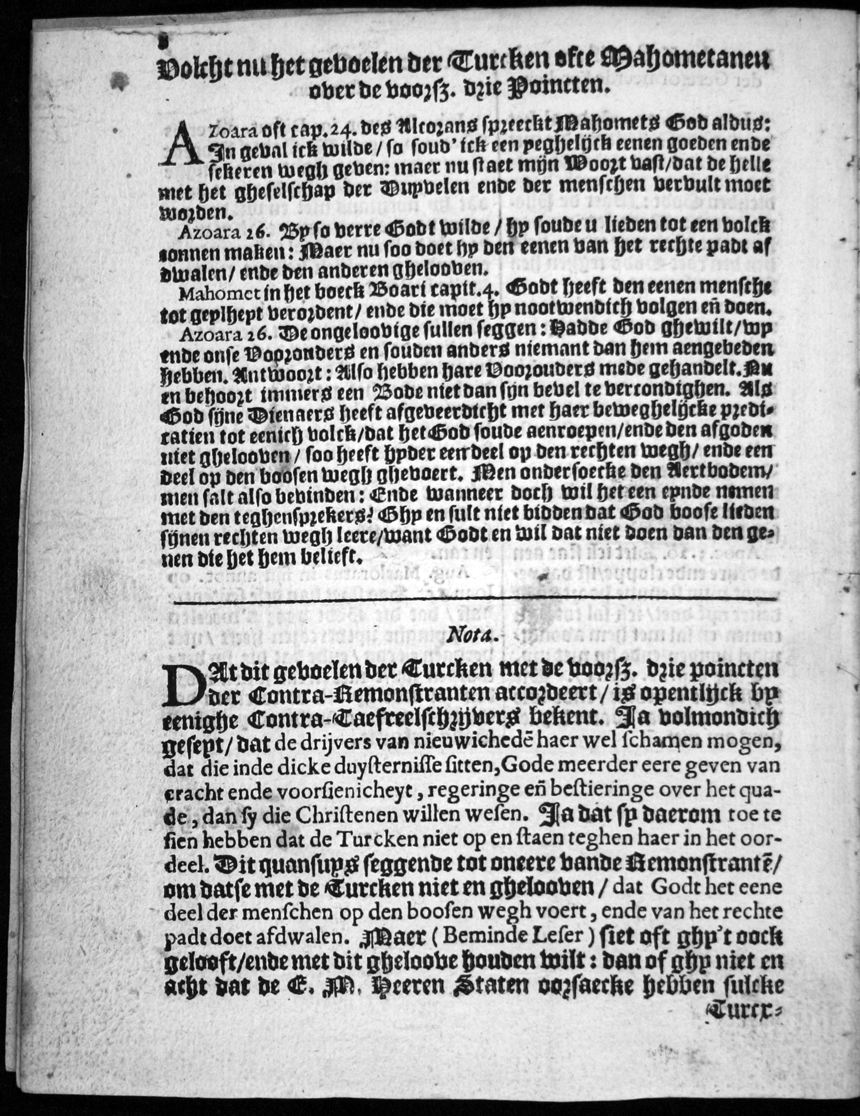 8
Volcht nu het gevoelen der Turcken ofte Mahometanen
over de voorsz. drie Poincten.
AZoara oft cap. 24. des Alcorans spreeckt Mahomets God aldus:
In geval ick wilde / so soud' ick een yeghelijck eenen goeden ende
sekeren wegh geven: maer nu staet mijn Woort vast / dat de helle
met het gheselschap der Duyvelen ende der menschen vervult moet
worden.
Azoara 26. By so verre Godt wilde / hy soude u lieden tot een volck
connen maken: Maer nu soo doet hy den eenen van het rechte padt af
dwalen / ende den anderen ghelooven.
Mahomet in het boeck Boari capit. 4. Godt heeft den eenen mensche
tot geplheyt verordent / ende die moet hy nootwendich volgen eñ doen.
Azoara 26. De ongeloovige sullen seggen: Hadde God ghewilt / wy
ende onse Vooronders en souden anders niemant dan hem aengebeden
hebben. Antwoort: Also hebben hare Voorouders mede gehandelt. Nu
en behoort immers een Bode niet dan sijn bevel te vercondighen. Als
God sijne Dienaers heeft afgeveerdicht met haer beweghelijcke predi-
catien tot eenich volck / dat het God soude aenroepen / ende den afgoden
niet ghelooven / soo heeft hyder een deel op den rechten wegh / ende een
deel op den boosen wegh ghevoert. Men ondersoecke den Aertbodem /
men salt also bevinden: Ende wanneer doch wil het een eynde nemen
met den teghensprekers? Ghy en sult niet bidden dat God boose lieden
sijnen rechten wegh leere / want Godt en wil dat niet doen dan den ge-
nen die het hem belieft.
Nota.
DAt dit gevoelen der Turcken met de voorsz. drie poincten
der Contra-Remonstranten accordeert / is opentlijck by
eenighe Contra-Taefreelschrijvers bekent. Ja volmondich
geseyt / dat de drijvers van nieuwichedē haer wel schamen mogen,
dat die inde dicke duysternisse sitten, Gode meerder eere geven van
cracht ende voorsienicheyt, regeringe eñ bestieringe over het qua-
de, dan sy die Christenen willen wesen. Ja dat sy daerom toe te
sien hebben dat de Turcken niet op en staen teghen haer in het oor-
deel. Dit quansuys seggende tot oneere vande Remonstrantē /
om datse met de Turcken niet en ghelooven / dat Godt het eene
deel der menschen op den boosen wegh voert, ende van het rechte
padt doet afdwalen. Maer (Beminde Leser) siet oft ghy't oock
gelooft / ende met dit gheloove houden wilt: dan of ghy niet en
acht dat de E. M. Heeren Staten oorsaecke hebben sulcke
Turcx-